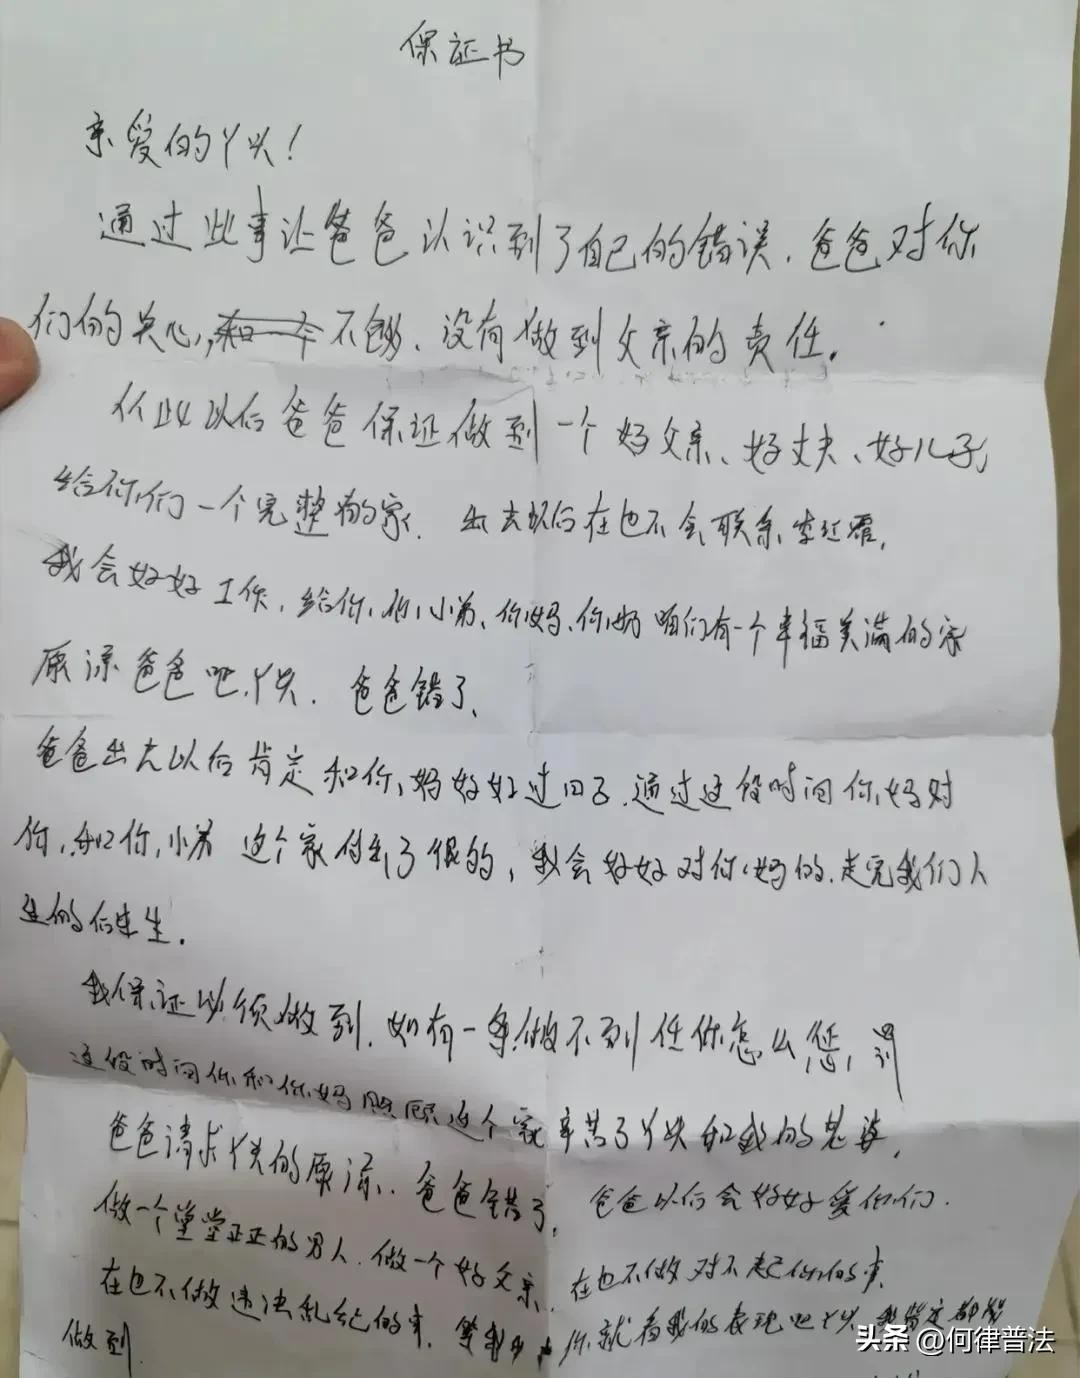 保证书
亲爱的丫头!
通过此事让爸爸认识到了自己的错误.爸爸对你
们的关心,不够、没有做到父亲的责任.
从此以后爸爸保证做到一个好父亲、好丈夫、好儿子,
给你们一个完整的家.出去以后在也不会联系李
我会好好工作,给你,你小弟、你妈、你奶咱们有一个幸福美满的家
原谅爸爸吧,丫头.爸爸错了、
爸爸出去以后肯定和你,妈好好过日子.通过这段时间你,妈对
你,和你,小弟这个家付出了很的,我会好好对你,妈的.走完我们人
生的后生.
我保证必须做到.如有一条做不到任你怎么惩,罚
这段时间你和你,妈照顾这个家辛苦了丫头和我的老婆,
爸爸请求丫头的原谅.爸爸错了,爸爸以后会好好爱你们.
做一个堂堂正正的男人.做一个好父亲、在也不做对不起你们的事、
在也不做违法乱纪的事.等我出去你,就看我的表现吧丫头我肯定都能
做到.
头条 @何律普法